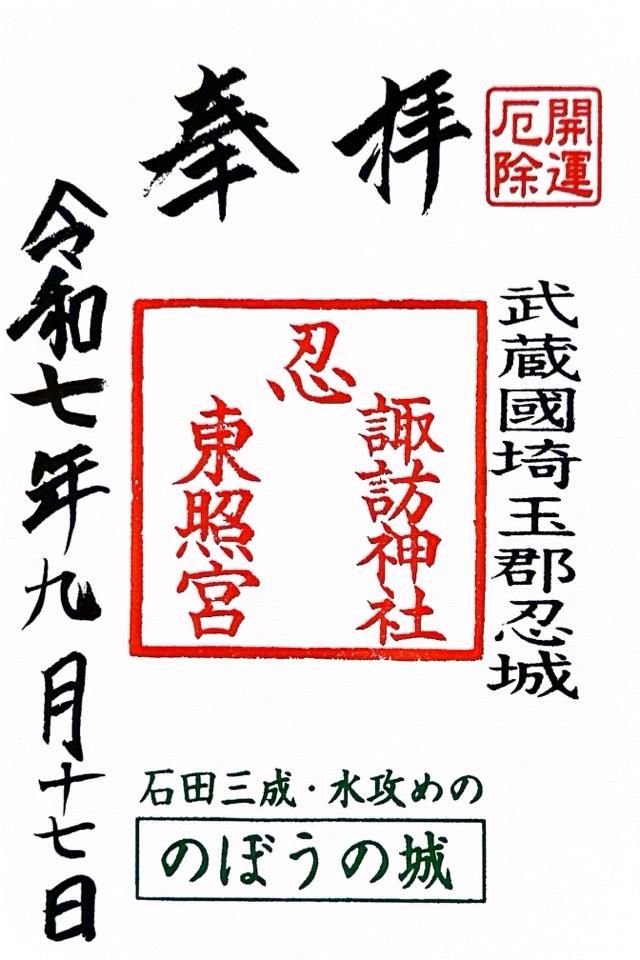 奉拝
開運
厄除
武蔵國埼玉郡忍城
忍
諏訪神社
東照宮
令和七年九月十七日
石田三成・水攻めの
のぼうの城